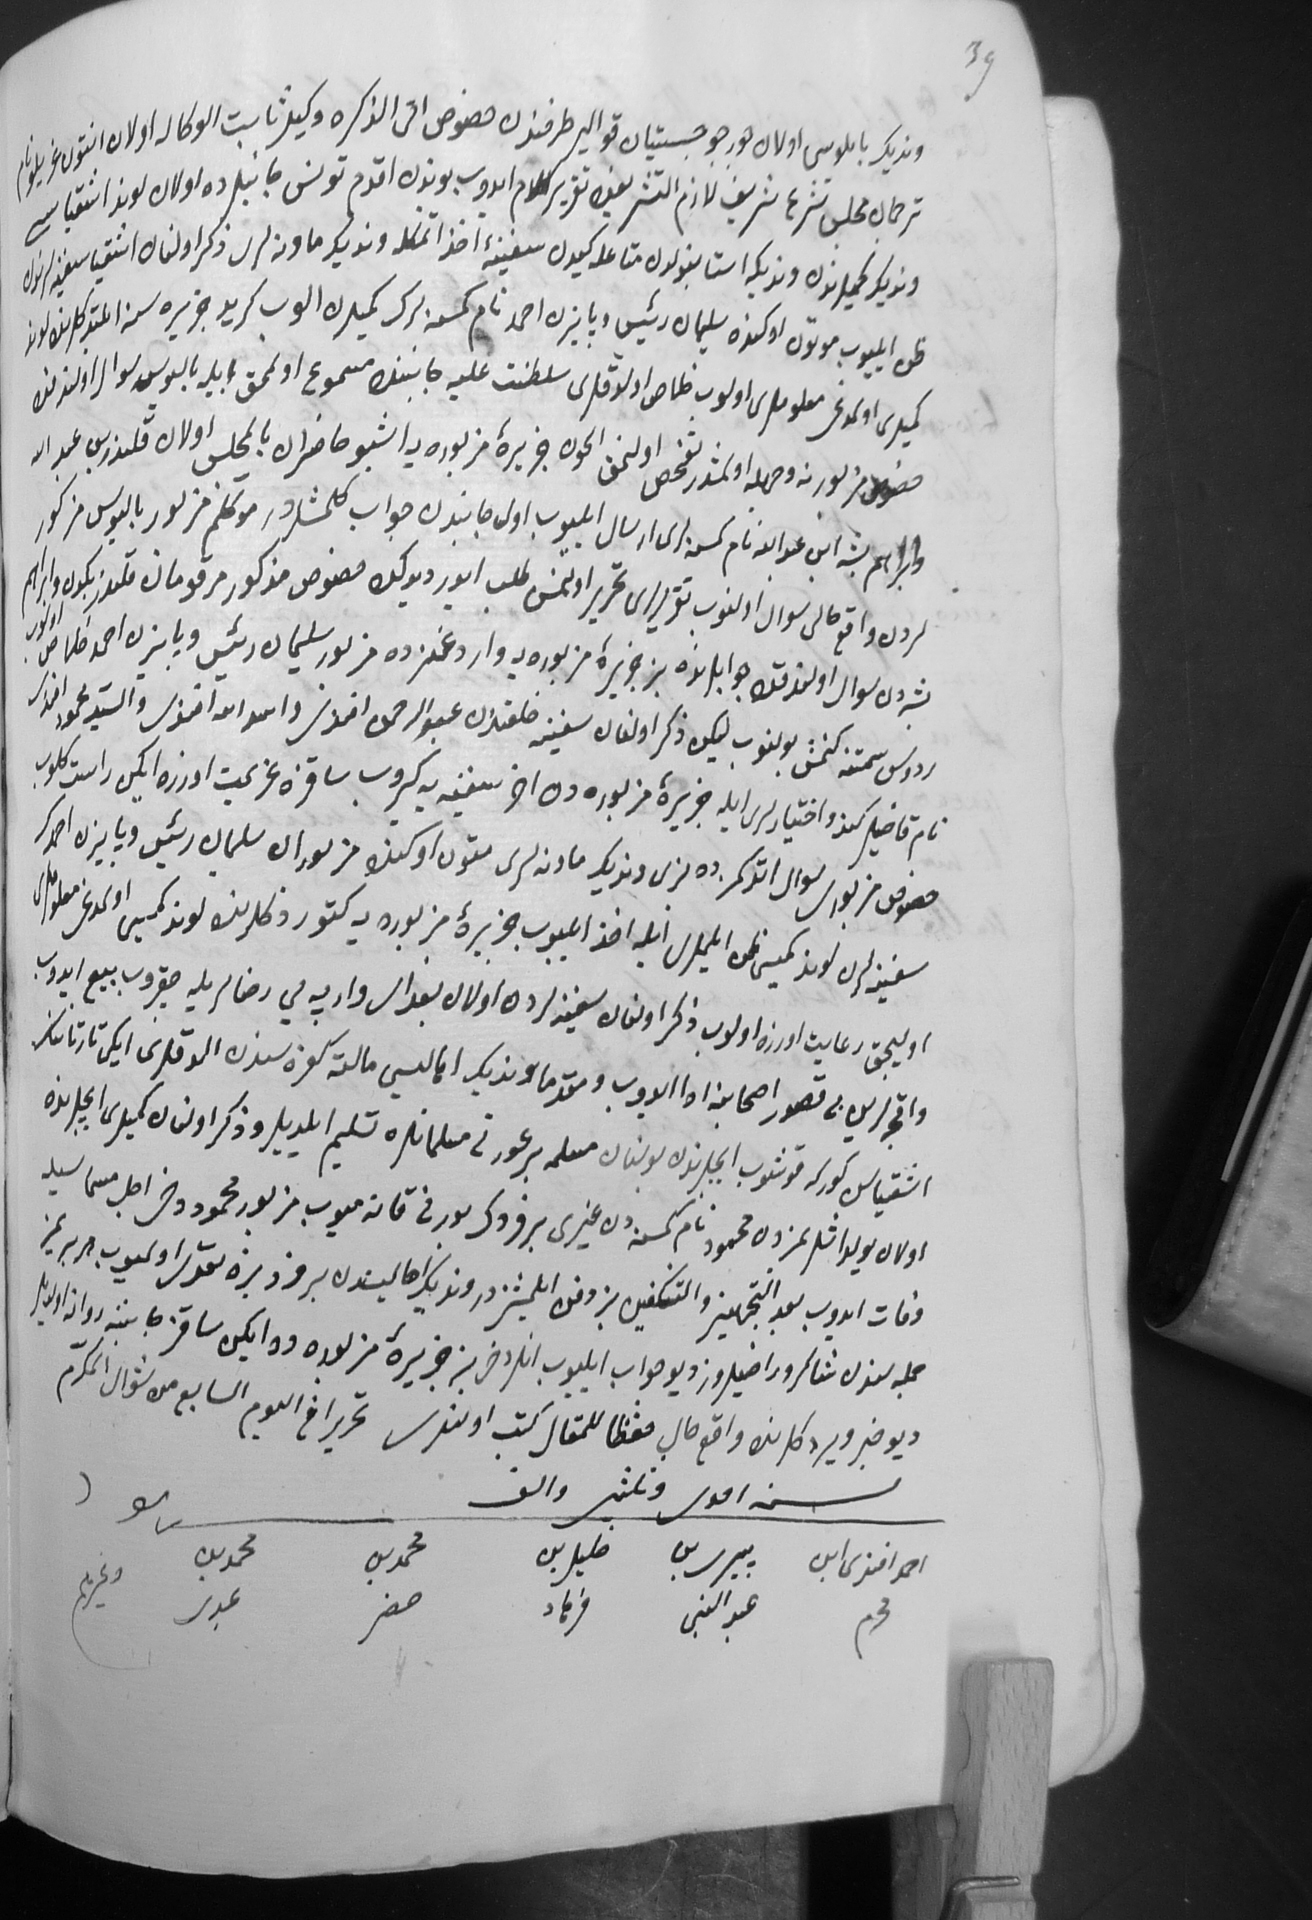 39
وندیک بایلوسی اولان جورجو جستنیان قوالیر طرفندن خصوص اتی الذکره وکیل ثابت الوکاله اولان انتون غریلو نام
ترجمان مجلس شرع شریف لازم التشریفده تقریر کلام ایدوب بوندن اقدم تونس جانبلرنده اولان لوند اشقیاسی
وندیک کمیلرندن وندیکه استانبولدن متاعله کیدن سفینۀ اخذ اتمکله وندیک ماونه لری ذکر اولنان اشقیا سفینه لرندن
ظن ایلیوب موتون اوکنده سلیمان رئیس و بابیزن احمد نام کمسنه لرک کمیلرن الوب کرید جزیره سنه التدکلرنده لوند
کمیلری اولمدوغی معلوملری اولوب خلاص اولدقلری سلطنت علیه جانبنده مسموع اولمغله بایلوس سوال اولندقده
خصوص مزبور نه وجهله اولمشدر تفحص اولنمق ایچون جزیرۀ مزبوره یه اشبو حاضران بالمجلس اولان قلندر بن عبد الله
وابراهیم بشه ابن عبد الله نام کمسنه لری ارسال ایلیوب اول جانبدن جواب کلمشلردر موکلم مزبور بایلوس مذکور
لردن واقع حالی سوال اولنوب تقریرلری تحریر اولنمسن طلب ایدر دیدکده خصوص مذکور مرقومان قلندر بکدن وابراهیم
بشه دن سوال اولندقده جوابلرنده بز جزیرۀ مزبوره یه واردغمزده مزبور سلیمان رئیس و بابیزن احمد خلاص اولوب
ردوس سمتنه کتمش بولنوب لیکن ذکر اولنان سفینه خلقندن عبد الرحمن افندی و اسد الله افندی والسید محمود افندی
نام قاضیلر کندو اختیارلری ایله جزیرۀ مزبوره دن اخر سفینه یه کیروب ساقزه عزیمت اوزره ایکن راست کلوب
خصوص مزبوری سوال اتدکمزده بزی وندیک ماونه لری متون اوکنده مزبوران سلیمان رئیس و بابیزن احمدک
سفینه لرن لوند کمیسی ظن ایلملری ایله اخذ ایلیوب جزیرۀ مزبوره یه کتوردکلرنده لوند کمیسی اولمدوغی معلوملری
اولیجق رعایت اوزره اولوب ذکر اولنان سفینه لرده اولان بغدای وارپه یی رضالریله چقروب بیع ایدوب
واقچه لرین بی قصور اصحابنه ادا ایدوب و مقدما وندیک اهالیسی مالته کفره سندن الدقلری ایکی تارتانک
اشقیاسن کورکه قوشوب ایچلرندن بولنان مسلمه بر عورتی مسلمانلره تسلیم ایلدیلر و ذکر اولنان کمیلری ایچلرنده
اولان یولداشلرمزدن محمود نام کمسنه دن غیری بر فردک بورنی قانه میوب مزبور محمود دخی اجل مسماسیله
وفات ایدوب بعد التجهیز والتکفین بز دفن ایلمشزدر وندیک اهالیسندن بر فرد بزه تعدی اولمیوب هر بریمز
جمله سندن شاکر و راضیلروز دیو جواب ایلیوب انلر دخی بز جزیرۀ مزبوره ده ایکن ساقز جانبنه روانه اولدیلر
دیو خبر ویردکلرنده واقع حال حفظا للمقال کتب اولندی تحریرا فی الیوم السابع من شوال المکرم
سنه احدی وثلثین والف
احمد افندی ابن محرم
پیری بن عبد الغنی
خلیل بن فرهاد
محمد بن خضر
محمد بن عبدی
وغیرهم